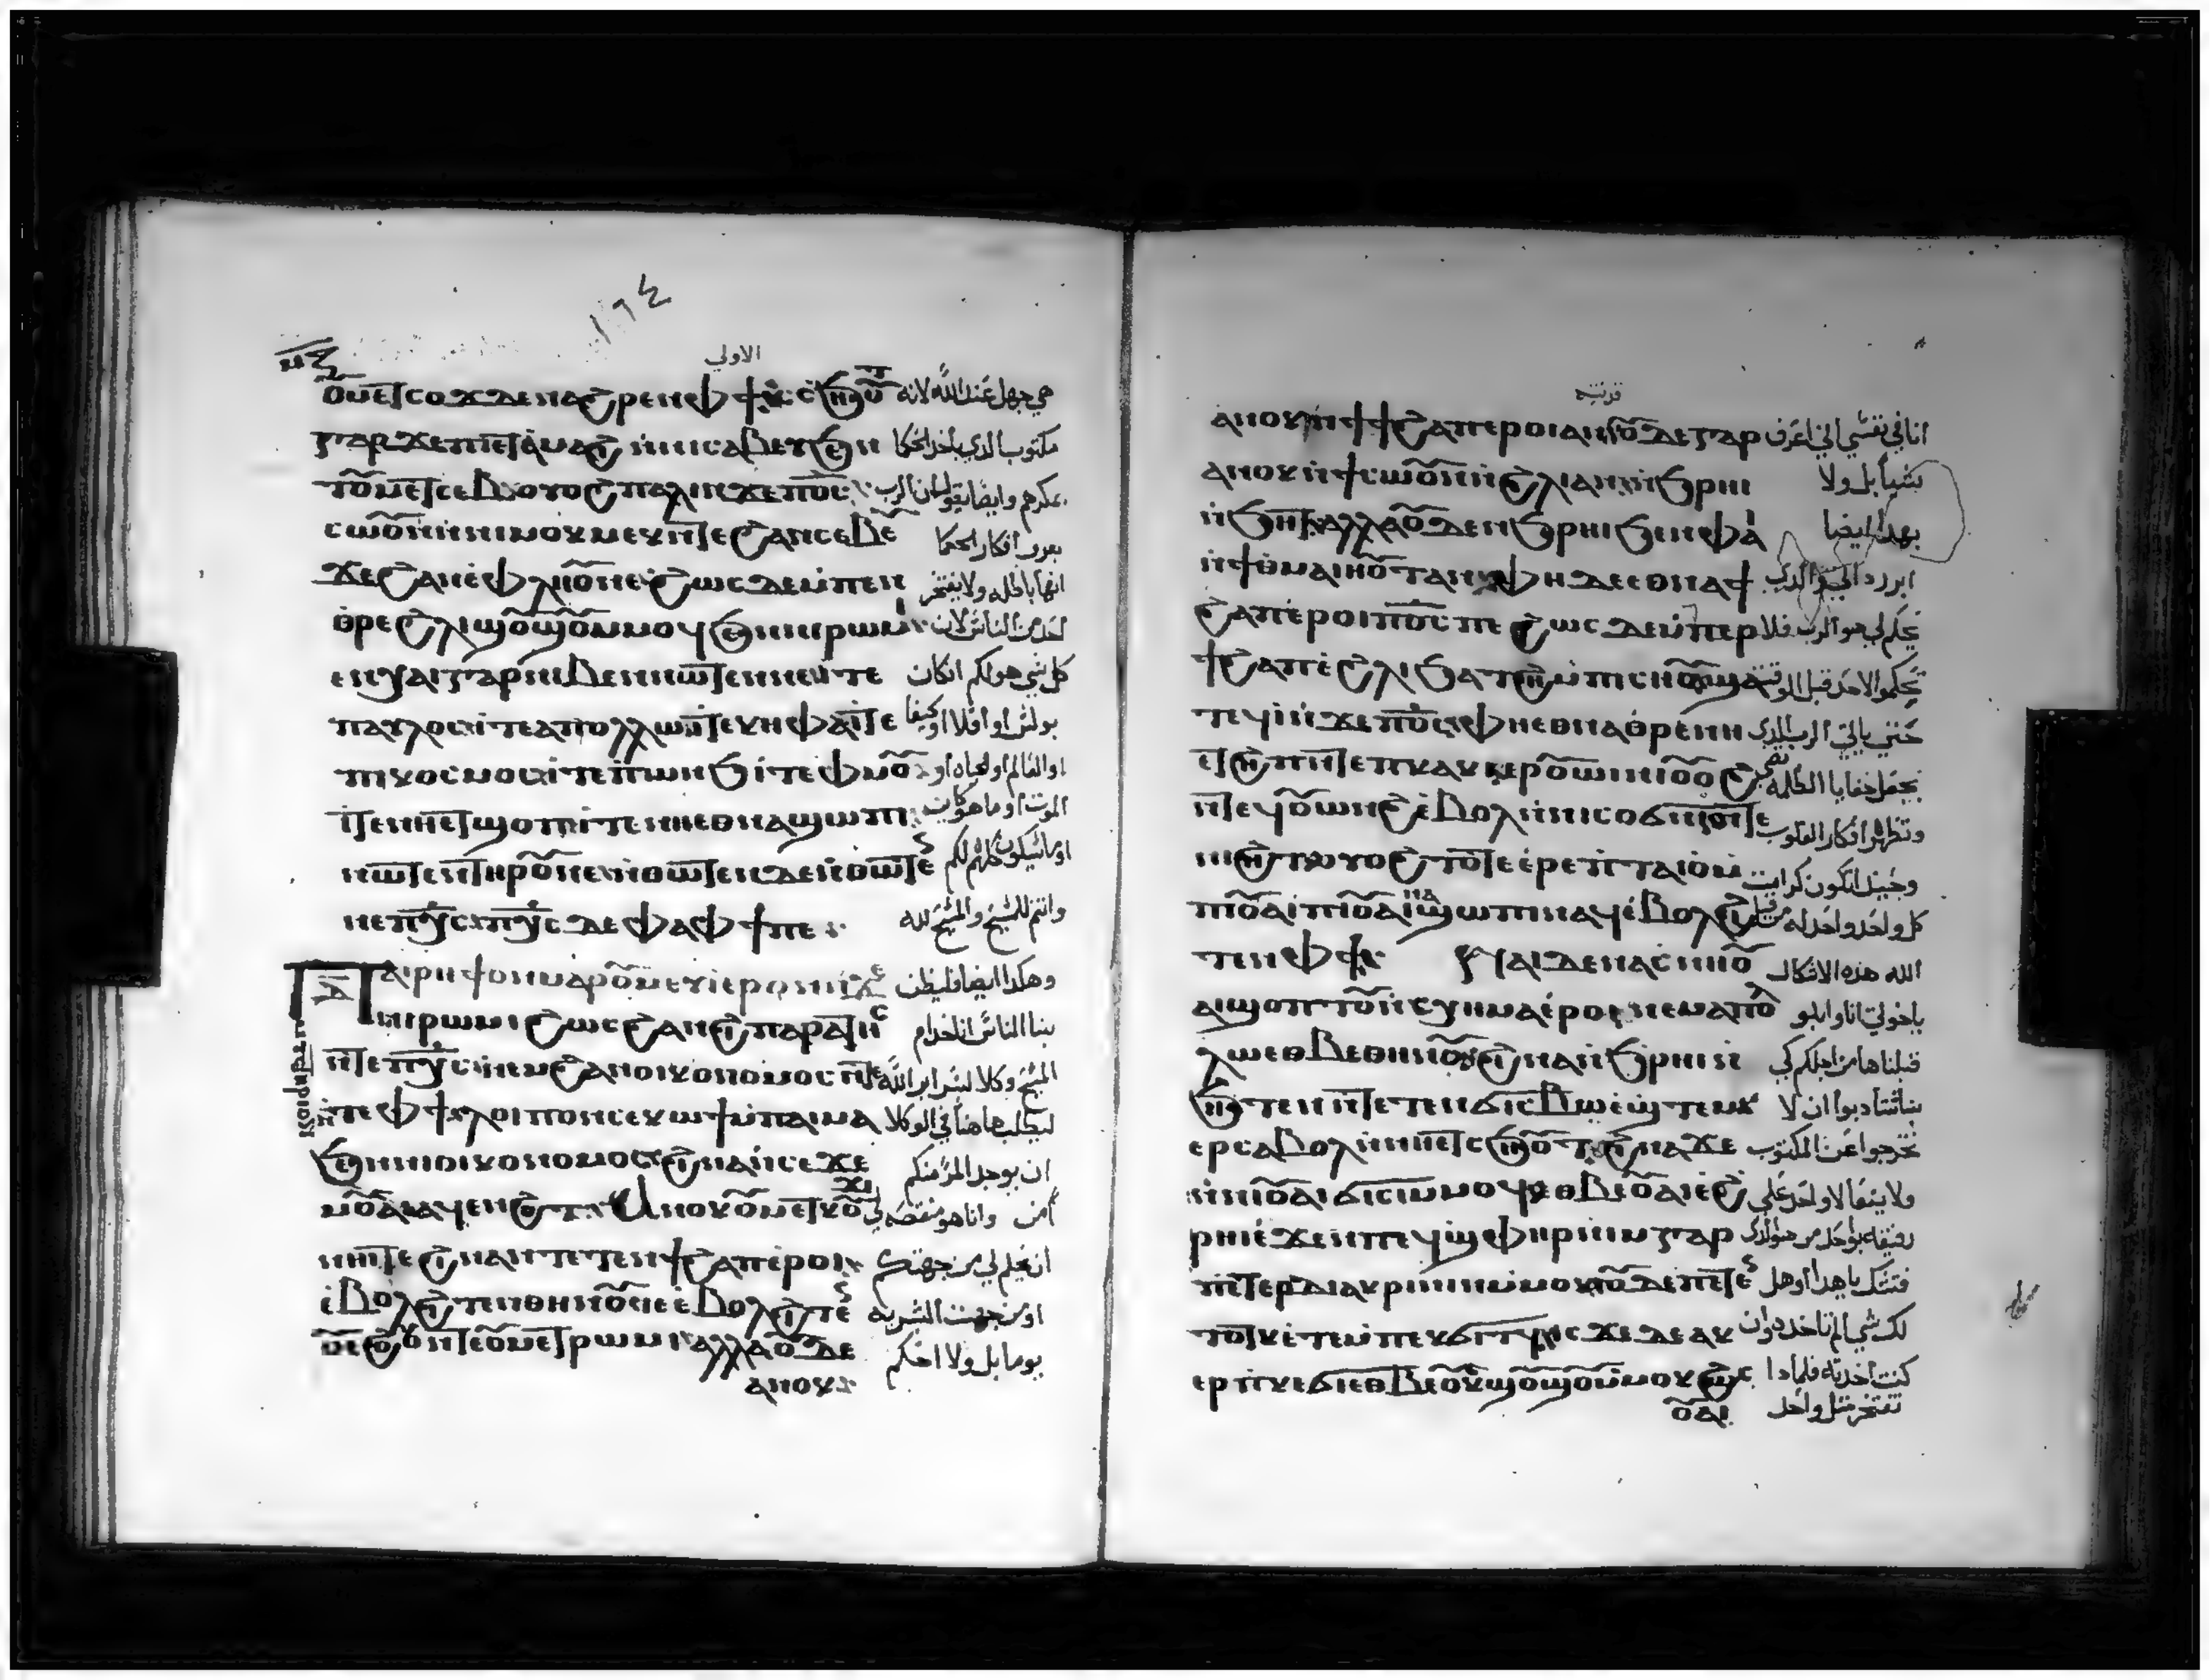 الاولي
ⲟⲩⲙⲉⲧⲥⲟϫ ⲇⲉ ⲛⲁϩⲣⲉⲛ ⲫϯ ⲥⳉⲏⲟⲩⲧ هي جهل عند الله لانه
ⲅⲁⲣ ϫⲉ ⲡⲉⲧⲁⲙⲁϩⲓ ⲛⲛⲓⲥⲁⲃⲉⲩ ϧⲉⲛ مكتوب الدي ياخد الحكما
ⲧⲟⲩⲙⲉⲧⲥⲉⲃⲟ ⲟⲩⲟϩ ⲡⲁⲗⲓⲛ ϫⲉ ⲡⲟⲥ بمكرهم وايضا يقول ان الرب
ⲥⲱⲟⲩⲛ ⲛⲛⲓⲙⲟⲕⲙⲉⲕ ⲛⲧⲉ ϩⲁⲛⲥⲁⲃⲉ يعرف افكار الحكما
ϫⲉ ϩⲁⲛⲉⲫⲗⲏⲟⲩ ⲛⲉ ϩⲱⲥ ⲇⲉ ⲙⲡⲉⲛ انها باطله ولا يفتخر
ⲑⲣⲉ ϩⲗⲓ ϣⲟⲩϣⲟⲩ ⲙⲙⲟϥ ϧⲉⲛ ⲛⲓⲣⲱⲙⲓ احد من الناس لان
ⲉⲛⲭⲁⲓ ⲅⲁⲣ ⲛⲓⲃⲉⲛ ⲛⲱⲧⲉⲛ ⲛⲉ ⲓⲧⲉ كل شي هو لكم ان كان
ⲡⲁⲩⲗⲟⲥ ⲓⲧⲉ ⲁⲡⲟⲗⲗⲱ ⲓⲧⲉ ⲕⲏⲫⲁ ⲓⲧⲉ بولس او افلوا او كيفا
ⲡⲓⲕⲟⲥⲙⲟⲥ ⲓⲧⲉ ⲡⲱⲛϧ ⲓⲧⲉ ⲫⲙⲟⲩ او العالم او الحياه او
ⲓⲧⲉ ⲛⲏⲉⲧϣⲟⲡ ⲓⲧⲉ ⲛⲏⲉⲑⲛⲁϣⲱⲡⲓ الموت او ما هو كاين
ⲛⲱⲧⲉⲛ ⲧⲏⲣⲟⲩ ⲛⲉ ⲛⲑⲱⲧⲉⲛ ⲇⲉ ⲛⲑⲱⲧⲉⲛ او ما سيكون كلهم لكم
ⲛⲉ ⲡⲭⲥ ⲡⲭⲥ ⲇⲉ ⲫⲁ ⲫϯ ⲡⲉ وانتم للمسيح والمسيح لله
ⲡⲁⲓⲣⲏϯ ⲟⲛ ⲙⲁⲣⲟⲩⲙⲉⲩⲓ ⲉⲣⲟⲛ ⲛϫⲉ وهكدا ايضا فليظن
ⲛⲓⲣⲱⲙⲓ ϩⲱⲥ ϩⲁⲛϩⲩⲡⲏⲣⲉⲧⲏⲥ بنا الناس اننا خدام
ⲛⲧⲉ ⲡⲭⲥ ⲛⲉⲙ ϩⲁⲛⲟⲓⲕⲟⲛⲟⲙⲟⲥ المسيح ووكلا لسراير الله
ⲛⲧⲉ ⲫϯ ⲗⲟⲓⲡⲟⲛ ⲥⲉⲕⲱϯ ⲙⲡⲁⲓⲙⲁ ليطلب هاهنا في الوكلا
ϧⲉⲛ ⲛⲓⲟⲓⲕⲟⲛⲟⲙⲟⲥ ϩⲓⲛⲁ ⲛⲥⲉϫⲉ ان يوجد المر منكم
ⲙⲟⲩⲁⲓ ⲁϥⲉⲛϩⲟⲧ ⲁⲛⲟⲕ ⲟⲩⲙⲉⲧⲕⲟⲩϫⲓ امن وانا هو منقصه لي
ⲛⲏⲓ ⲧⲉ ϩⲓⲛⲁ ⲛⲧⲉⲧⲉⲛϯϩⲁⲡ ⲉⲣⲟⲓ ان يحكم لي من جهتكم
ⲉⲃⲟⲗ ϩⲓⲧⲉⲛ ⲑⲏⲛⲟⲩ ⲓⲉ ⲉⲃⲟⲗ ϩⲓⲧⲉⲛ او من جهت البشريه
ⲟⲩⲉϩⲟⲟⲩ ⲛⲧⲉ ⲟⲩⲙⲉⲧⲣⲱⲙⲓ ⲁⲗⲗⲁ ⲟⲩⲇⲉ يوما بل ولا احكم
ⲁⲛⲟⲕ
قرنتيه
ⲁⲛⲟⲕ ⲛϯϯϩⲁⲡ ⲉⲣⲟⲓ ⲁⲛ ⲟⲩⲇⲉ ⲅⲁⲣ انا في نفسي اني اعرف
ⲁⲛⲟⲕ ⲛϯⲥⲱⲟⲩⲛ ⲛϩⲗⲓ ⲁⲛ ⲛϧⲣⲏⲓ بشيا بل ولا
ⲛϧⲏⲧ ⲁⲗⲗⲁ ⲟⲩⲇⲉ ⲛϧⲣⲏⲓ ϧⲉⲛ ⲫⲁⲓ بهدا ايضا
ⲛϯⲑⲙⲁⲓⲏⲟⲩⲧ ⲁⲛ ⲫⲏ ⲇⲉ ⲉⲑⲛⲁϯ
ϩⲁⲡ ⲉⲣⲟⲓ ⲡⲟⲥ ⲡⲉ ϩⲱⲥ ⲇⲉ ⲙⲡⲉⲣ يحكم لي هو الرب فلا
ϯϩⲁⲡ ⲉϩⲗⲓ ϧⲁⲧϩⲏ ⲙⲡⲓⲥⲏⲟⲩ ϣⲁ تحكموا لاحد قبل الوقت
ⲧⲉϥⲓ ⲛϫⲉ ⲡⲟⲥ ⲫⲏ ⲉⲑⲛⲁⲑⲣⲉ ⲛⲏ حتي ياتي الرب الدي
ⲉⲧϩⲏⲡ ⲛⲧⲉ ⲡⲭⲁⲕⲓ ⲉⲣⲟⲩⲱⲓⲛⲓ ⲟⲩⲟϩ يجعل خفايا الظلمه تضي
ⲛⲧⲉϥⲟⲩⲱⲛϩ ⲉⲃⲟⲗ ⲛⲛⲓⲥⲟϭⲛⲓ ⲛⲧⲉ وتظهر افكار القلوب
ⲛⲓϩⲏⲧ ⲟⲩⲟϩ ⲧⲟⲧⲉ ⲉⲣⲉ ⲡⲓⲧⲁⲓⲟ ⲙ وحينيد تكون كرامت
ⲡⲓⲟⲩⲁⲓ ⲡⲓⲟⲩⲁⲓ ⲛⲁϣⲱⲡⲓ ⲛⲁϥ ⲉⲃⲟⲗ ϩⲓ كل واحد واحد له من قبل
ⲧⲉⲛ ⲫϯ ⲛⲁⲓ ⲇⲉ ⲛⲁⲥⲛⲏⲟⲩ الله هده الاشكال
ⲁⲓϣⲟⲡⲟⲩ ⲛⲥⲭⲏⲙⲁ ⲉⲣⲟⲓ ⲛⲉⲙ ⲁⲡⲟⲗ ياخوتي انا وابلو
ⲗⲱ ⲉⲑⲃⲉ ⲑⲏⲛⲟⲩ ϩⲓⲛⲁ ⲛϧⲣⲏⲓ ⲛ قبلناها من اجلكم كي
ϧⲏⲧⲉⲛ ⲛⲧⲉⲧⲉⲛϭⲓⲥⲃⲱ ⲉϣⲧⲉⲙ بنا تتادبوا ان لا
ⲉⲣⲥⲁⲃⲟⲗ ⲛⲛⲏⲉⲧⲥϧⲏⲟⲩⲧ ϩⲓⲛⲁ ϫⲉ تخرجوا عن المكتوب
ⲛⲛⲉⲟⲩⲁⲓ ϭⲓⲥⲓ ⲙⲙⲟϥ ⲉⲑⲃⲉ ⲟⲩⲁⲓ ⲉϩ ولا يتعالا واحد علي
ⲣⲏⲓ ⲉϫⲉⲛ ⲡⲉϥϣⲫⲏⲣ ⲛⲓⲙ ⲅⲁⲣ رفيقه بواحد من هو الدي
ⲡⲉⲧⲉⲣⲇⲓⲁⲕⲣⲓⲛⲓⲛ ⲙⲙⲟⲕ ⲟⲩ ⲇⲉ ⲡⲉⲧⲉ فتشك ياهدا او هل
ⲛⲧⲟⲧⲕ ⲉⲧⲉ ⲙⲡⲉⲕϭⲓⲧϥ ⲓⲥϫⲉ ⲇⲉ ⲁⲕ لك شي لم تاخده وان
ⲉⲣ ⲡⲕⲉϭⲓ ⲉⲑⲃⲉⲟⲩ ⲕϣⲟⲩϣⲟⲩ ⲙⲙⲟⲕ ϩⲱⲥ كنت اخدته فلمادا
ⲟⲩⲁⲓ تفتخر مثل واحد